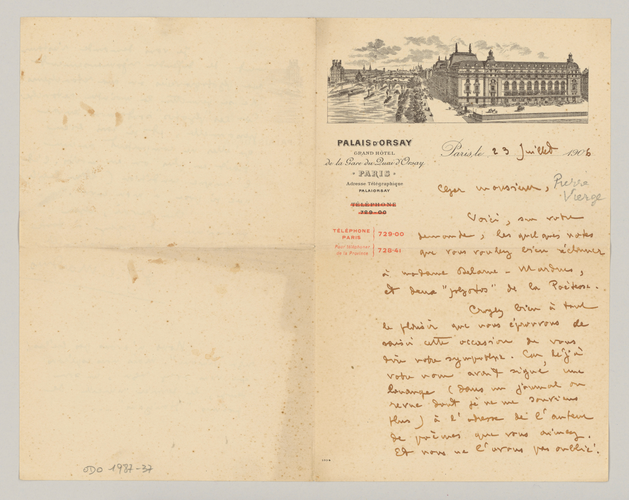 PALAIS D'ORSAY
GRAND HÔTEL
de la Gare du Quai d'Orsay
PARIS
Adresse Télégraphique
PALAIORSAY
TÉLÉPHONE
729-00
TÉLÉPHONE
PARIS
729-00
Pour téléphoner
de la Province
728-41
Paris, le 23 Juillet 1906
Cher monsieur,
Pierre
Vierge
Voici, sur votre
demande, les quelques notes
que vous voulez bien réclamer
à madame Delarue-Mardrus,
et deux "photos" de la Poétesse.
Croyez bien à tout
le plaisir que nous éprouvons de
saisir cette occasion de vous
dire notre sympathie. Car déjà
votre nom avait signé une
louange (dans un journal ou
revue dont je ne me souviens
plus) à l'adresse de l'auteur
de poèmes que vous aimez.
Et nous ne l'avons pas oublié.
ODO 1987-37